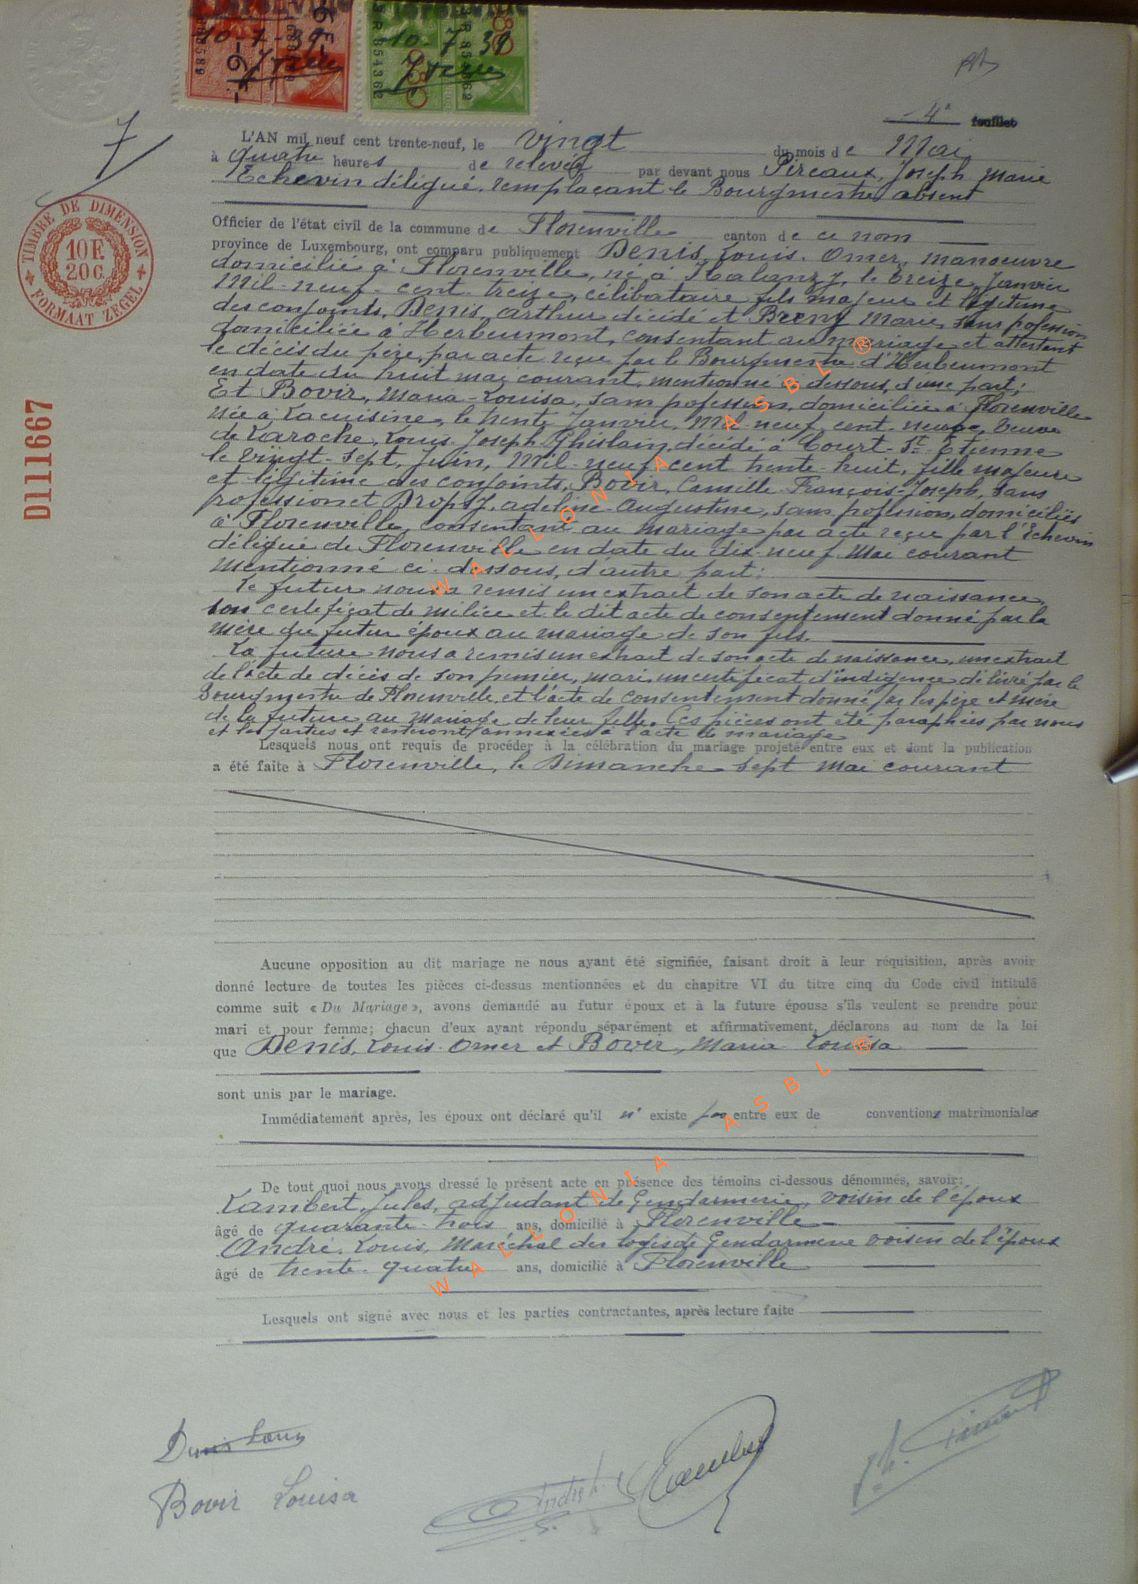 10-7-39
10-7-39
4e feuillet
7
L'AN mil neuf cent trente-neuf, le vingt du mois de Mai
à quatre heures de relevée par devant nous Pireaux, Joseph Marie
Echevin délégué, remplaçant le Bourgmestre absent
TIMBRE DE DIMENSION
10 F.
20 C.
FORMAAT ZEGEL
D111667
Officier de l'état civil de la commune de Florenville canton de ce nom
province de Luxembourg, ont comparu publiquement Denis, Louis-Omer, manoeuvre
domicilié à Florenville, né à Halanzy, le treize Janvier
Mil-neuf-cent-treize, célibataire fils majeur et légitime
des conjoints, Denis, Arthur décédé et Breny Marie, sans profession
domiciliée à Herbeumont, consentant au mariage et attestant
le décès du père, par acte reçu par le Bourgmestre d'Herbeumont
en date du huit mai courant, mentionné ci dessous, d'une part;
Et Bovir, Maria-Louisa, sans profession, domiciliée à Florenville
née à Lacuisine, le trente Janvier, Mil-neuf-cent-neuf, veuve
de Laroche, Louis-Joseph, Ghislain, décédé à Court-St-Etienne
le vingt-sept, Juin, Mil-neuf-cent trente-huit, fille majeure
et légitime des conjoints, Bovir, Camille-François-Joseph, sans
profession et Dropsy, Adeline-Augustine, sans profession, domiciliés
à Florenville, consentant au mariage par acte reçu par l'Echevin
délégué de Florenville en date du dix-neuf Mai courant
mentionné ci-dessous, d'autre part:
Le futur nous a remis un extrait de son acte de naissance,
son certificat de milice et le dit acte de consentement donné par la
mère du futur époux au mariage de son fils.
La future nous a remis un extrait de son acte de naissance, un extrait
de l'acte de décès de son premier mari, un certificat d'indigence délivré par le
Bourgmestre de Florenville et l'acte de consentement donné par les père et mère
de la future au mariage de leur fille. Ces pièces ont été paraphées par nous
et les parties et resteront annexées à l'acte de mariage
Lesquels nous ont requis de procéder à la célébration du mariage projeté entre eux et dont la publication
a été faite à Florenville, le Dimanche sept mai courant
Aucune opposition au dit mariage ne nous ayant été signifiée, faisant droit à leur réquisition, après avoir
donné lecture de toutes les pièces ci-dessus mentionnées et du chapitre VI du titre cinq du Code civil intitulé
comme suit « Du Mariage », avons demandé au futur époux et à la future épouse s'ils veulent se prendre pour
mari et pour femme; chacun d'eux ayant répondu séparément et affirmativement, déclarons au nom de la loi
que Denis, Louis-Omer et Bovir, Maria-Louisa
sont unis par le mariage.
Immédiatement après, les époux ont déclaré qu'il n'existe pas entre eux de conventions matrimoniales
De tout quoi nous avons dressé le présent acte en présence des témoins ci-dessous dénommés, savoir:
Lambert, Jules, adjudant de Gendarmerie, voisin de l'époux
âgé de quarante-trois ans, domicilié à Florenville
André, Louis, Maréchal des logis de Gendarmerie voisin de l'époux
âgé de trente-quatre ans, domicilié à Florenville
Lesquels ont signé avec nous et les parties contractantes, après lecture faite
WALLONIA ASBL ®
WALLONIA ASBL ®
Denis Louis
Bovir Louisa
André L
Lambert